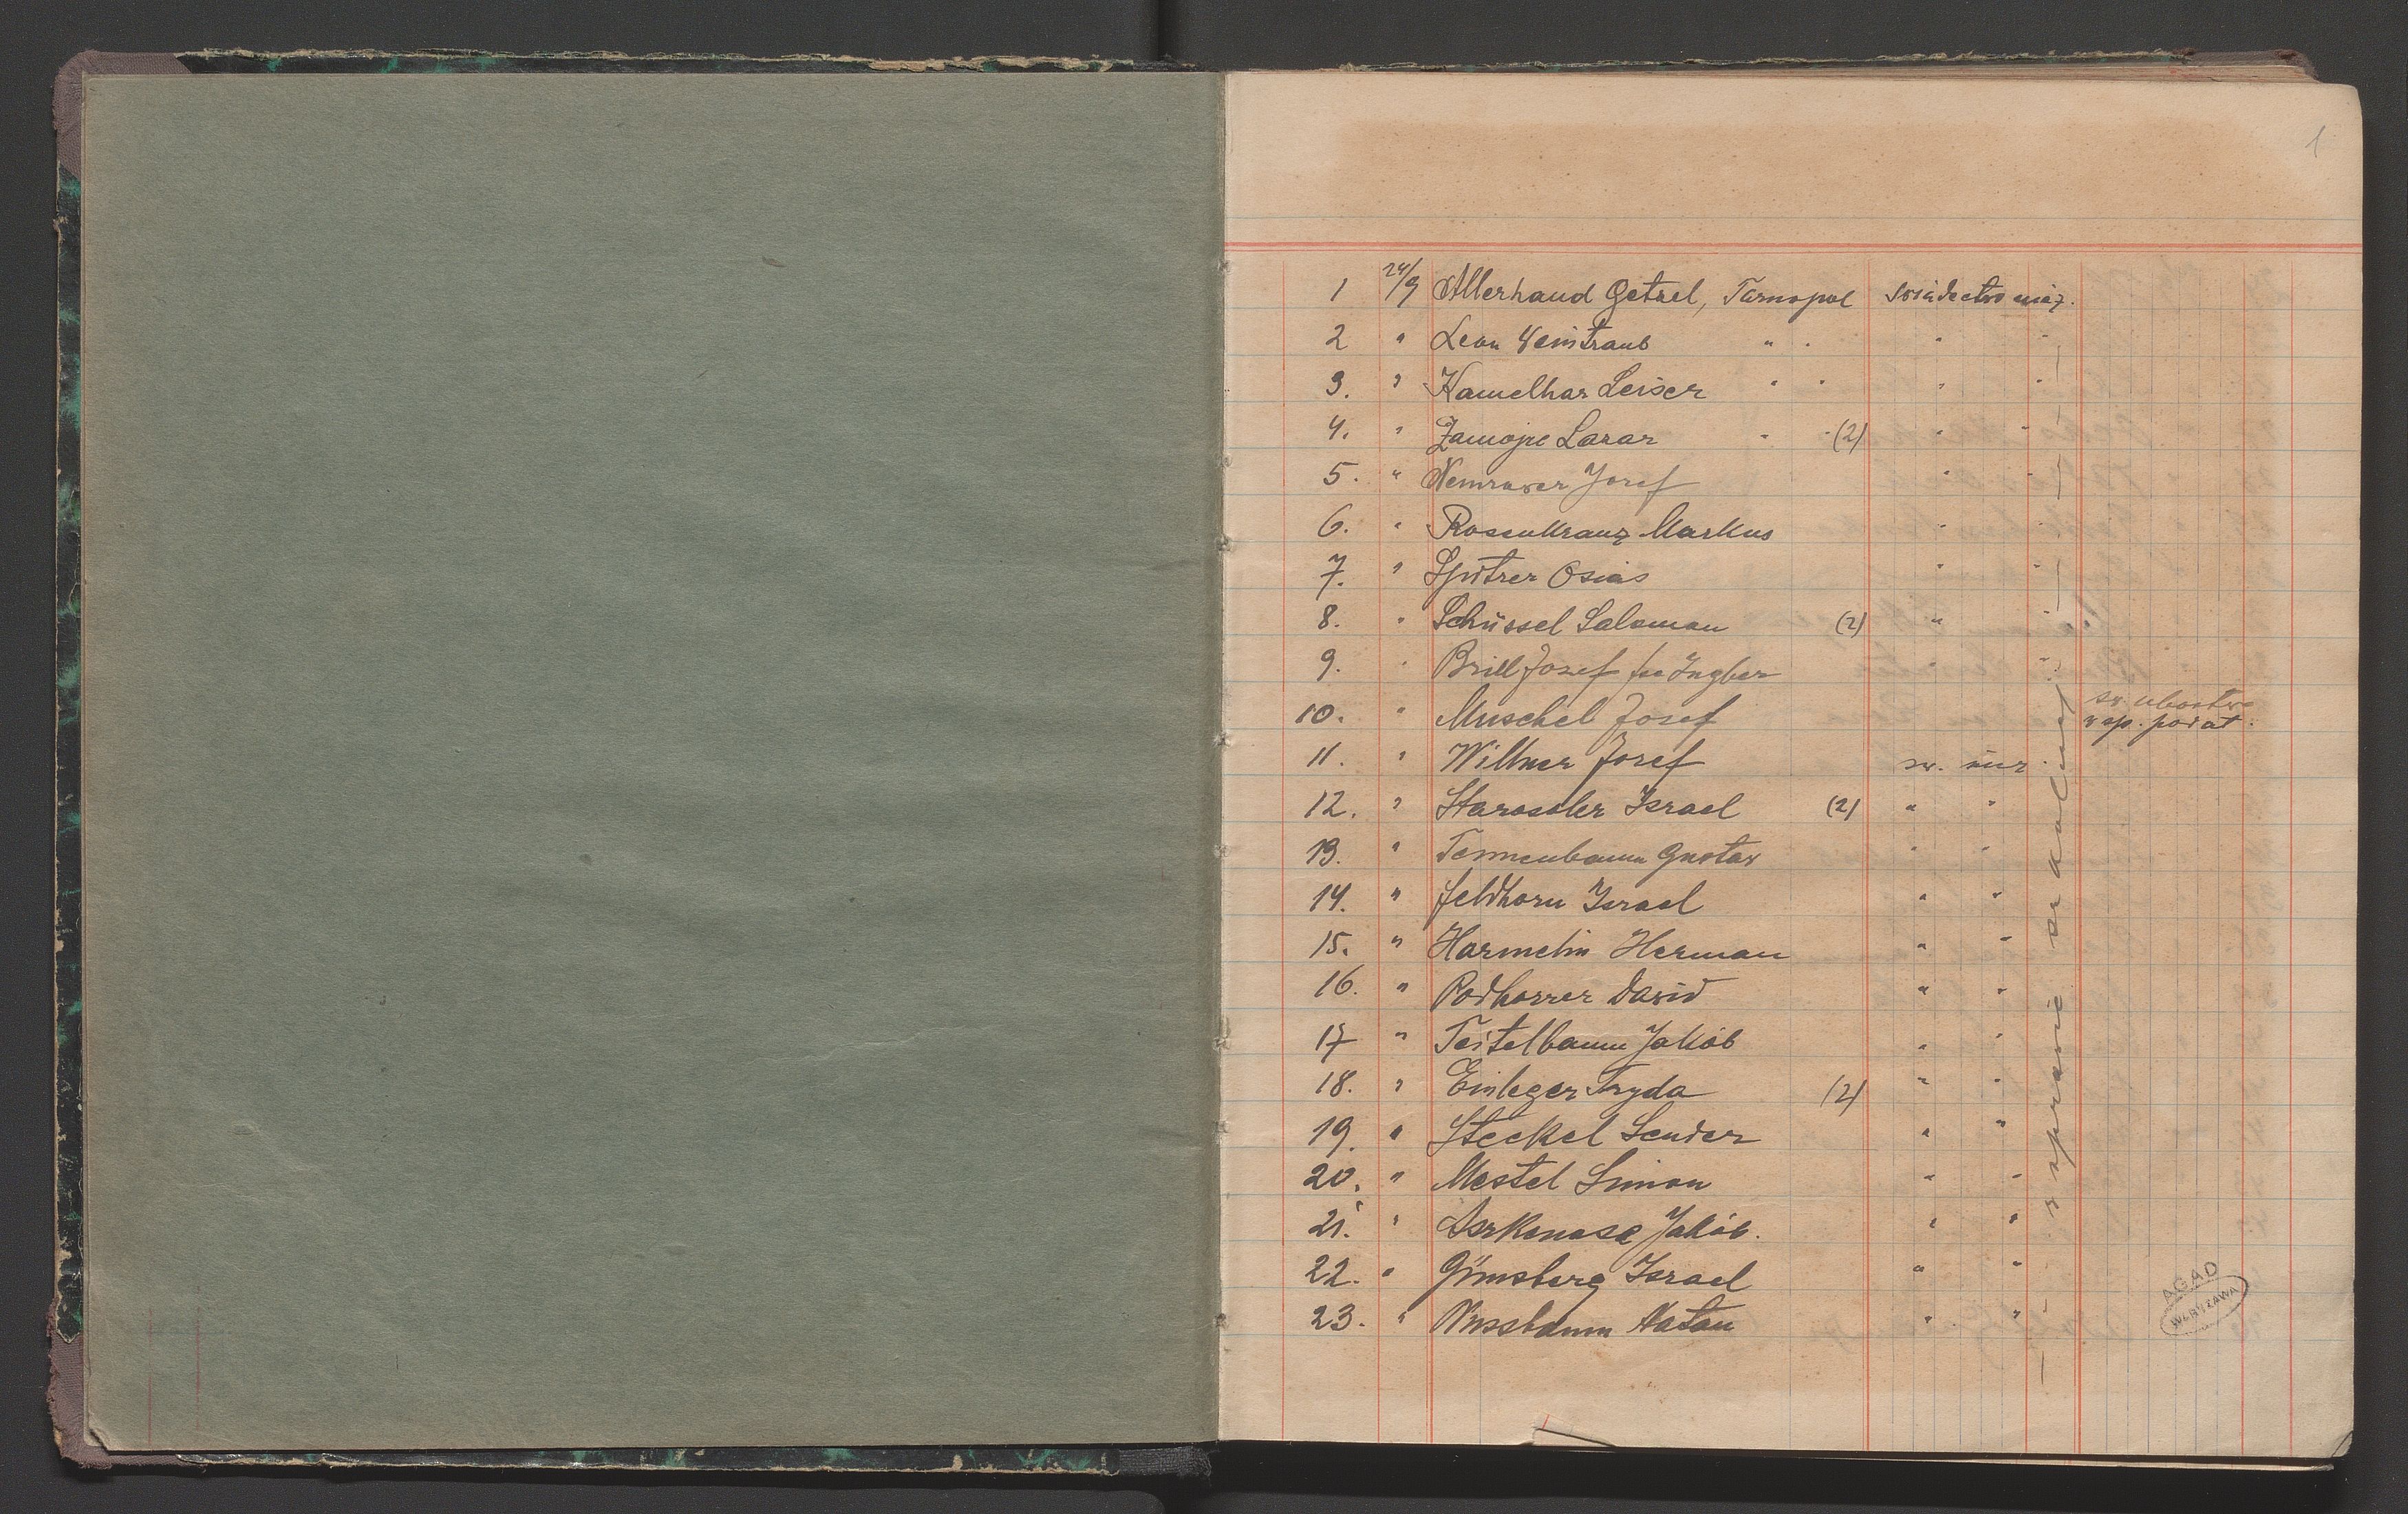 1
1 24/9 Allerhand Getzel, Tarnopol
2 " Leon Weintraub " "
3. " Kamelhar Leiser " "
4. " Zamojre Lazar " " (2)
5. " Josef " "
6. " Rosenkranz Markus " "
7. " Spitzer Osias " "
8. " Schüssel Salomon (2) " "
9. " Brill Josef Ingber " "
10. " Muschel Josef
sp. podat.
11. " Willner Josef św.
12. " Starosoler Israel (2) " "
13. " Tennenbaum Gustaw " "
14. " Feldhorn Israel " "
15. " Harmelin Herman " "
16. " Podhorzer Dawid " "
17 " Teitelbaum Jakób " "
18. " Einleger Fryda (2) " "
19. " Steckel Sender " "
20. " Mestel Simon " "
21. " Jakób. " "
22. " Günsberg Israel " "
23. " Nussbaum Natan " "
w sprawie szkolnej
AGAD
WARSZAWA